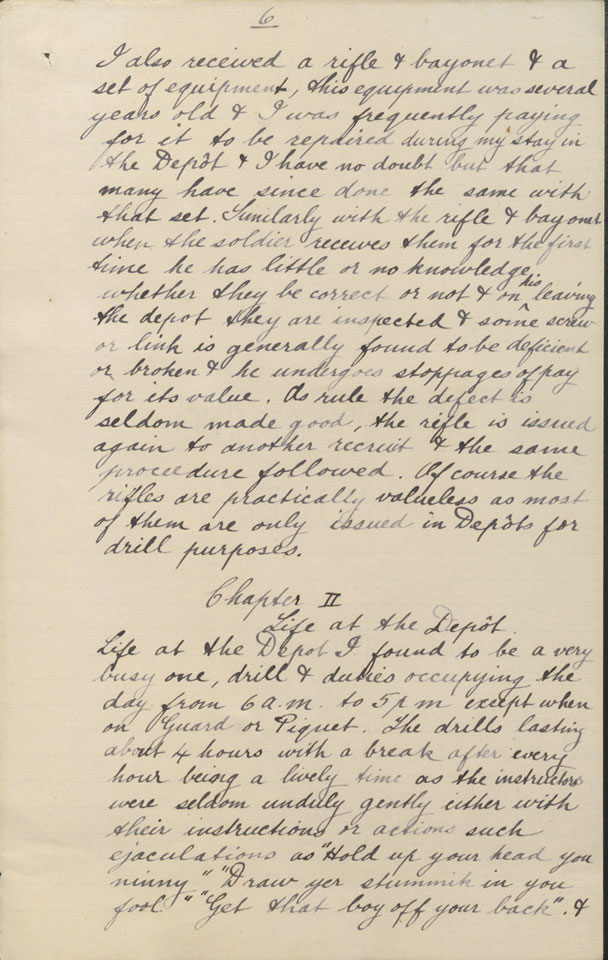 6
I also received a rifle & bayonet & a
set of equipment, this equipment was several
years old & I was frequently paying
for it to be repaired during my stay in
the Depôt & I have no doubt but that
many have since done the same with
that set. Similarly with the rifle & bayonet
when the soldier receives them for the first
time he has little or no knowledge
whether they be correct or not & on his leaving
the depot they are inspected & some screw
or link is generally found to be deficient
or broken & he undergoes stoppages of pay
for its value. As rule the defect is
seldom made good, the rifle is issued
again to another recruit & the same
proceedure followed. Of course the
rifles are practically valueless as most
of them are only issued in Depôts for
drill purposes.
Chapter II
Life at the Depôt.
Life at the Depot I found to be a very
busy one, drill & duties occupying the
day from 6 a.m. to 5 p m except when
on Guard or Piquet. The drills lasting
about 4 hours with a break after every
hour being a lively time as the instructors
were seldom unduly gently either with
their instructions or actions such
ejaculations as "Hold up your head you
ninny" "Draw yer stummik in you
fool" "Get that boy off your back". &